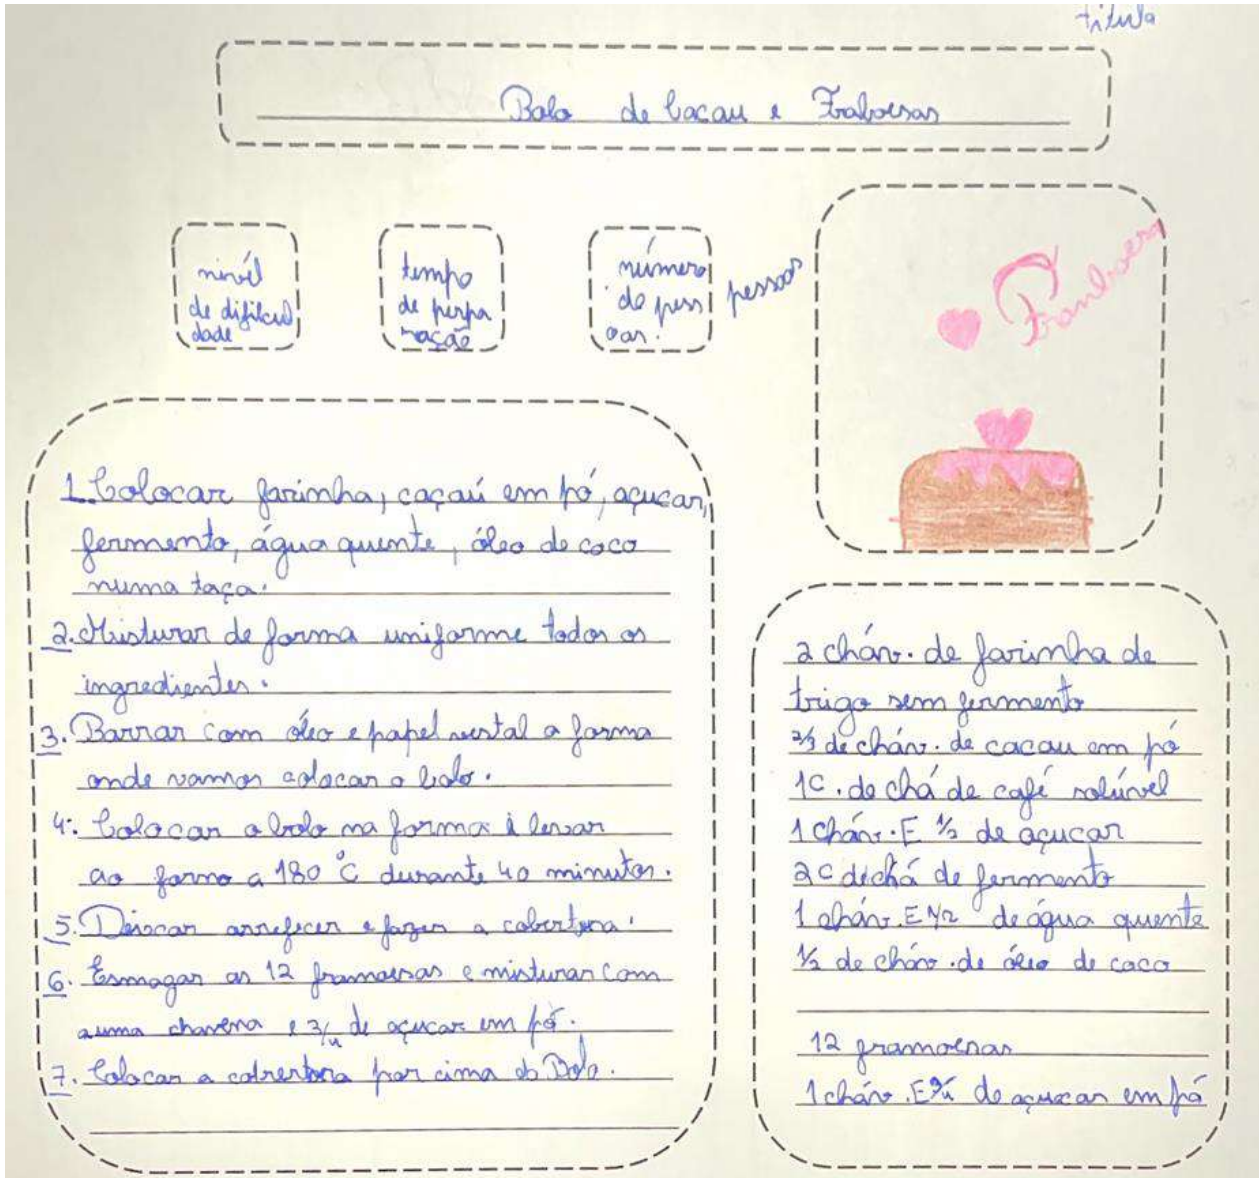 titulo
Bolo de Cacau e Fraboesas
nivél
de dificul
dade
tempo
de perpa
ração
número
de pess
oas.
pessoas
Framboesa
1. Colocar farinha, caçaú em pó, açucar,
fermento, água quente, óleo de coco
numa taça.
2. Misturar de forma uniforme todos os
ingredientes.
3. Barrar com óleo e papel vestal a forma
onde vamos colocar o bolo.
4. Colocar o bolo na forma i levar
ao forno a 180°C durante 40 minutos.
5. Deixar arrefecer e fazer a cobertura.
6. Esmagar as 12 framoesas e misturar com
auma chavena e 3/4 de açucar em pó.
7. Colocar a cobrertura por cima do Bolo.
2 cháv. de farinha de
trigo sem fermento
2/3 de cháv. de cacau em pó
1C. de chá de café solúvél
1 cháv. E 1/2 de açucar
2C de chá de fermento
1 cháv. E 1/2 de água quente
1/2 de cháv. de óleo de coco
12 framoesas
1 cháv. E 3/4 de açucar em pó